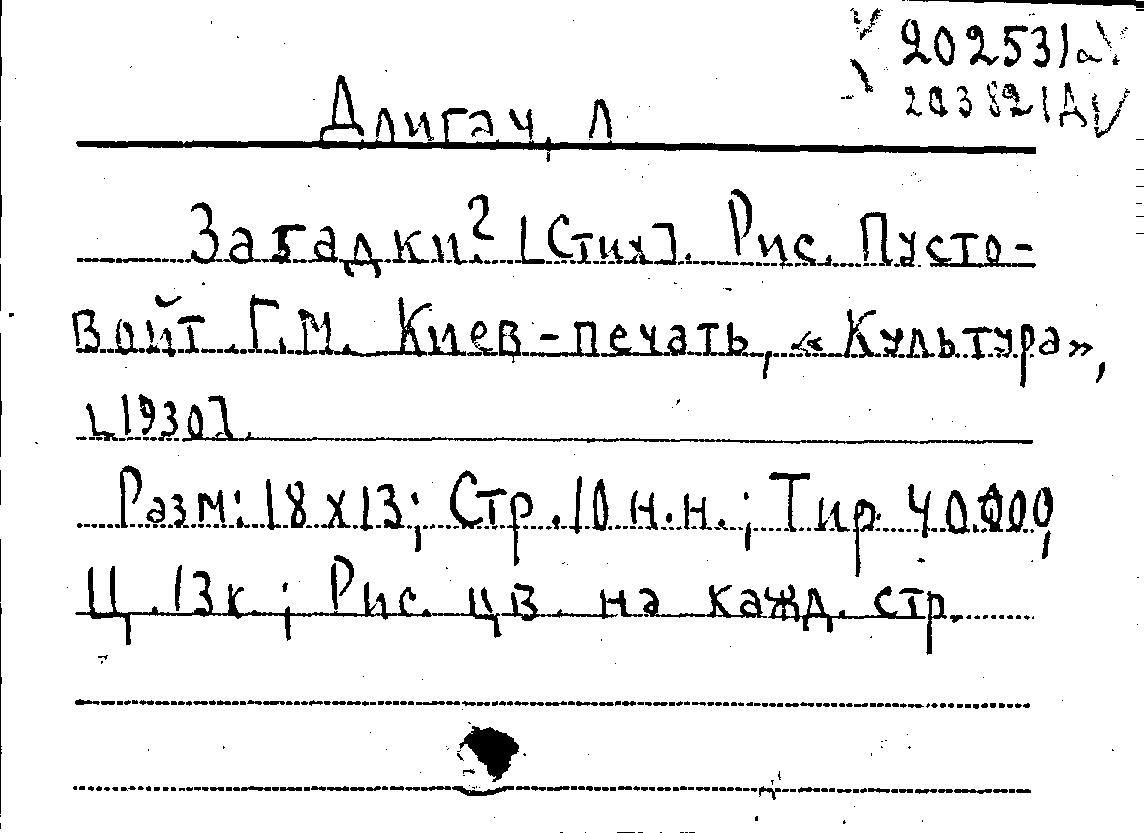 202531а
203821А
Длигач, Л
Загадки? [Стих]. Рис. Пусто-
войт Г.М. Киев-печать, «Культура»,
[1930].
Разм: 18х13; Стр. 10 н.н.; Тир. 40.000,
Ц. 13к.; Рис. цв. на кажд. стр.